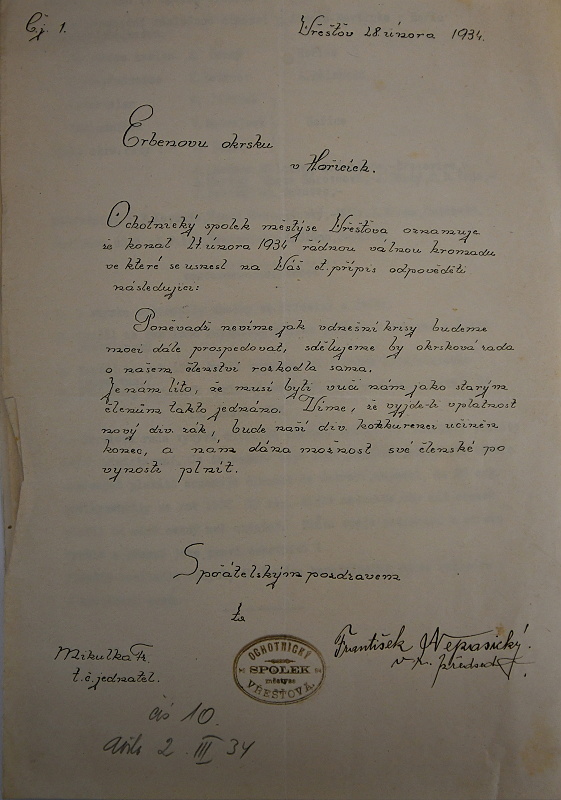 Čj. 1.
Vřešťov 28. února 1934.
Erbenovu okrsku
v Hořicích.
Ochotnický spolek městýse Vřešťova oznamuje
že konal 27 února 1934 řádnou valnou hromadu
ve které se usnesl na Váš ct. přípis odpověděti
následující:
Poněvadž nevíme jak v dnešní krisy budeme
moci dále prospedovat, sdělujeme by okrsková rada
o našem členství rozhodla sama.
Je nám líto, že musí býti vůči nám jako starým
členům takto jednáno. Víme, že vyjde-li v platnost
nový div. zák., bude naší div. konkurenci učiněn
konec, a nam dána možnost své členské po
vynosti plnit.
S přátelským pozdravem
Za
Mikulka Fr.
t. č. jednatel.
OCHOTNICKÝ
SPOLEK
městyse
VŘEŠŤOVA.
František Nepasický.
předseda
čís 10.
došlo 2. III 34